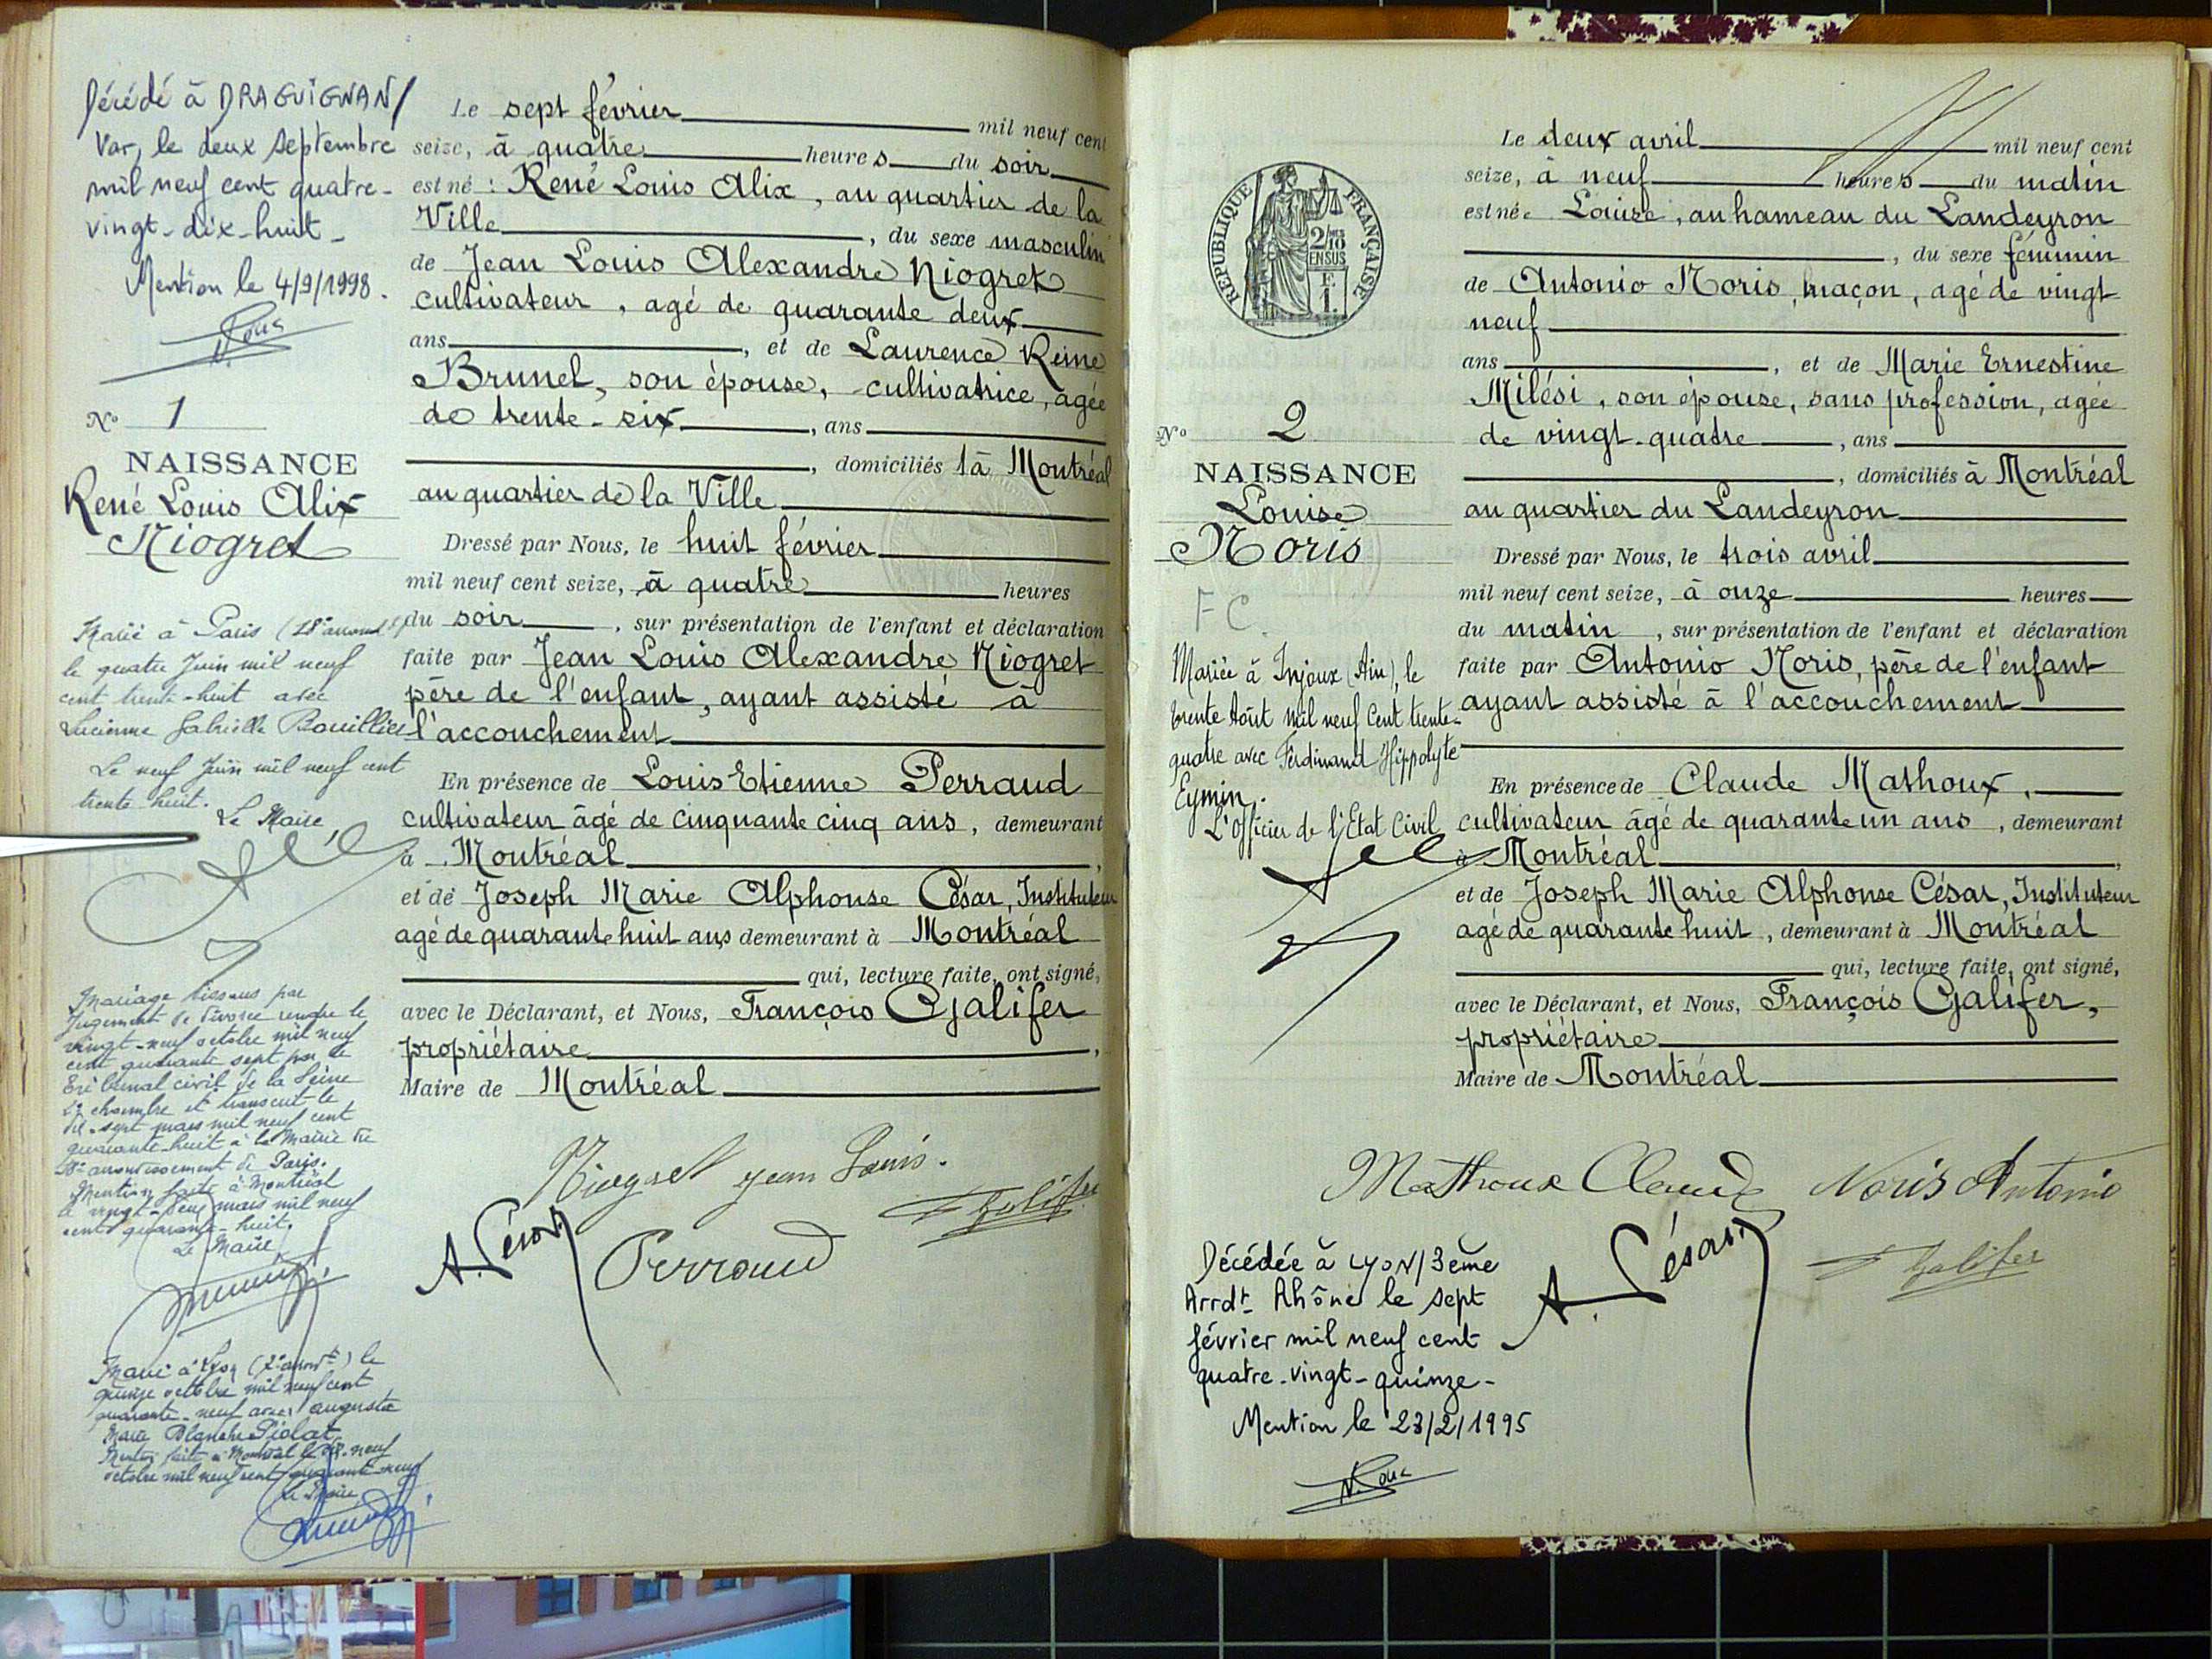 Décédé à DRAGUIGNAN/
Var, le deux septembre
mil neuf cent quatre-
vingt-dix-huit-
Mention le 4/9/1998.
N° 1
NAISSANCE
René Louis Alix
Niogret
Marié à Paris (18e arrondt)
le quatre Juin mil neuf
cent trente-huit avec
Lucienne Gabrielle Bouillier
Le neuf Juin mil neuf cent
trente huit.
Le Maire
Mariage dissous par
Jugement de divorce rendu le
vingt-neuf octobre mil neuf
cent quarante sept par le
Tribunal civil de la Seine
chambre et transcrit le
dix-sept mars mil neuf cent
quarante-huit à la Mairie du
18e arrondissement de Paris.
Mention faite à Montréal
le vingt-deux mars mil neuf
cent quarante-huit.
Le Maire
Marié à Lyon (2e arrondt) le
quinze octobre mil neuf cent
quarante-neuf avec Augusta
Marie Blanche Piolat
Mention faite à Montréal le dix-neuf
octobre mil neuf cent quarante neuf
Le Maire
Le sept février mil neuf cent
seize, à quatre heures du soir
est né : René Louis Alix, au quartier de la
Ville, du sexe masculin
de Jean Louis Alexandre Niogret
cultivateur, agé de quarante deux
ans, et de Laurence Reine
Brunel, son épouse, cultivatrice, agée
de trente-six, ans
, domiciliés à Montréal
au quartier de la Ville
Dressé par Nous, le huit février
mil neuf cent seize, à quatre heures
du soir, sur présentation de l'enfant et déclaration
faite par Jean Louis Alexandre Niogret
père de l'enfant, ayant assisté à
l'accouchement
En présence de Louis Etienne Perraud
cultivateur âgé de cinquante cinq ans, demeurant
à Montréal,
et de Joseph Marie Alphonse César, Instituteur
agé de quarante huit ans demeurant à Montréal
qui, lecture faite, ont signé,
avec le Déclarant, et Nous, François Galifer
propriétaire,
Maire de Montréal
Niogret jean Louis.
F Galifer
A. César
Perraud
REPUBLIQUE FRANÇAISE
2/10 EN SUS
F. 1.
N° 2
NAISSANCE
Louise
Noris
F C.
Mariée à Injoux (Ain), le
trente Août mil neuf Cent trente-
quatre avec Ferdinand Hippolyte
Eymin.
L'officier de l'Etat Civil
Le deux avril mil neuf cent
seize, à neuf heures du matin
est née Louise, au hameau du Landeyron
, du sexe féminin
de Antonio Noris, maçon, agé de vingt
neuf
ans, et de Marie Ernestine
Milési, son épouse, sans profession, agée
de vingt-quatre, ans
, domiciliés à Montréal
au quartier du Landeyron
Dressé par Nous, le trois avril
mil neuf cent seize, à onze heures
du matin, sur présentation de l'enfant et déclaration
faite par Antonio Noris, père de l'enfant
ayant assisté à l'accouchement
En présence de Claude Mathoux,
cultivateur âgé de quarante un ans, demeurant
à Montréal,
et de Joseph Marie Alphonse César, Instituteur
agé de quarante huit, demeurant à Montréal
qui, lecture faite, ont signé,
avec le Déclarant, et Nous, François Galifer,
propriétaire
Maire de Montréal
Mathoux Claude Noris Antonio
A. César
F Galifer
Décédée à LYON/3ème
Arrdt Rhône le sept
février mil neuf cent
quatre-vingt-quinze-
Mention le 23/2/1995